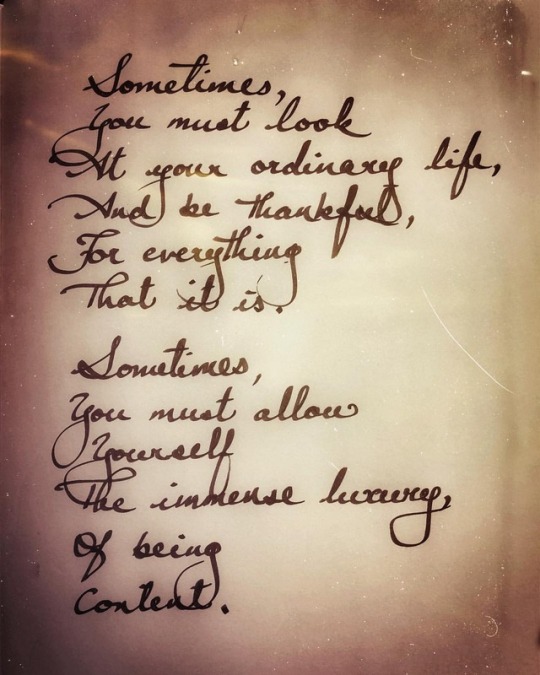 Sometimes,
You must look
At your ordinary life,
And be thankful,
For everything
That it is.
Sometimes,
You must allow
Yourself
The immense luxury,
Of being
Content.